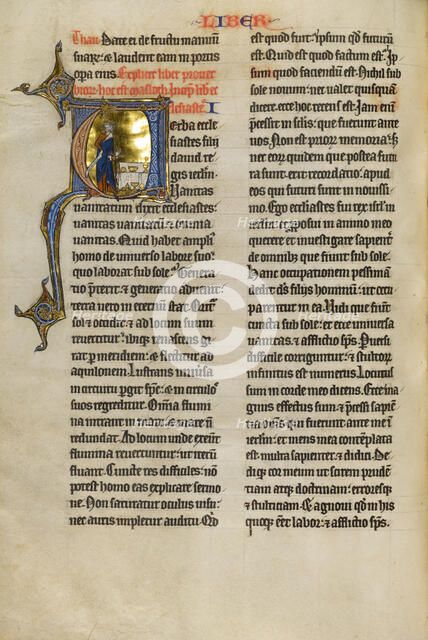 LIBER
Thau Date ei de fructu manuum
suarum: & laudent eam in portis
opera eius. Explicit liber prover
biorum. hoc est masloth. Incipit liber
Ecclesiastes. I
Verba eccle
siastes filii
david re
gis ierlm.
Vanitas
vanitatum dixit ecclesiastes
vanitas vanitatum & omnia
vanitas. Quid habet ampli9
homo de universo labore suo
quo laborat sub sole? Genera
tio preterit & generatio advenit:
terra vero in eternum stat. Oritur
sol & occidit: & ad locum suum
revertitur: ibique renascens gi
rat per meridiem: & flectitur ad
aquilonem. Lustrans universa
in circuitu pergit sps: & in circulos
suos regreditur. Omnia flumi
na intrant in mare: & mare non
redundat. Ad locum unde exeunt
flumina revertuntur: ut iterum
fluant. Cuncte res difficiles: non
potest homo eas explicare sermo
ne. Non saturatur oculus visu:
nec auris impletur auditu. Qd
est quod fuit? ipsum quod futurum
est. Quid est quod factum est? Ip
sum quod faciendum est. Nichil sub
sole novum: nec valet quisquam
dicere. ecce hoc recens est. Iam enim
precessit in seculis: que fuerunt ante
nos. Non est priorum memoria: sed
nec eorum quidem que postea futu
ra sunt. erit recordatio. apud
eos qui futuri sunt in novissi
mo. Ego ecclesiastes fui rex isrl in
ierlm. & proposui in animo meo
querere et investigare sapienter
de omnibus que fiunt sub sole.
Hanc occupationem pessimam
dedit ds filiis hominum: ut occu
parentur in ea. Vidi que fiunt
cuncta sub sole: et ecce universa
vanitas: & afflictio sps. Perversi
difficile corriguntur: & stultorum
infinitus est numerus. Locutus
sum in corde meo dicens. Ecce ma
gnus effectus sum: & precessi sapien
tia omnes qui fuerunt ante me in
ierlm: et mens mea contemplata
est multa sapienter: & didici. De
dique cor meum ut scirem pruden
tiam atque doctrinam: erroresque
& stultitiam: & agnovi quod in his
quoque esset labor: & afflictio sps.